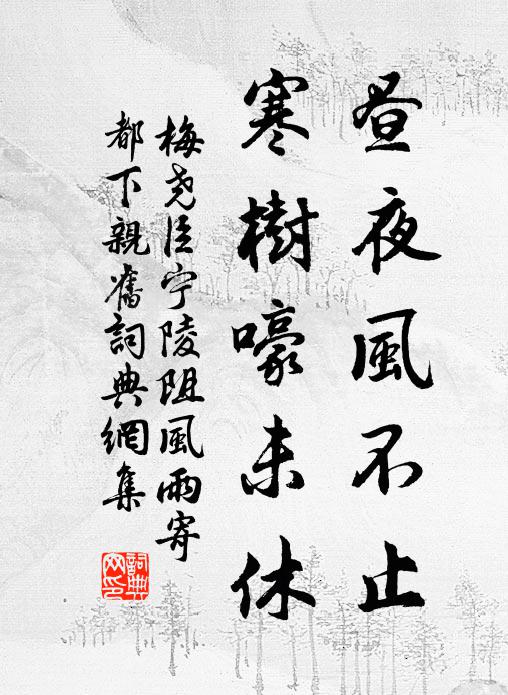 昼夜風不止
寒樹嚎未休
梅尧臣宁陵阻風雨寄
都下親舊詞典網集
詞典
网印